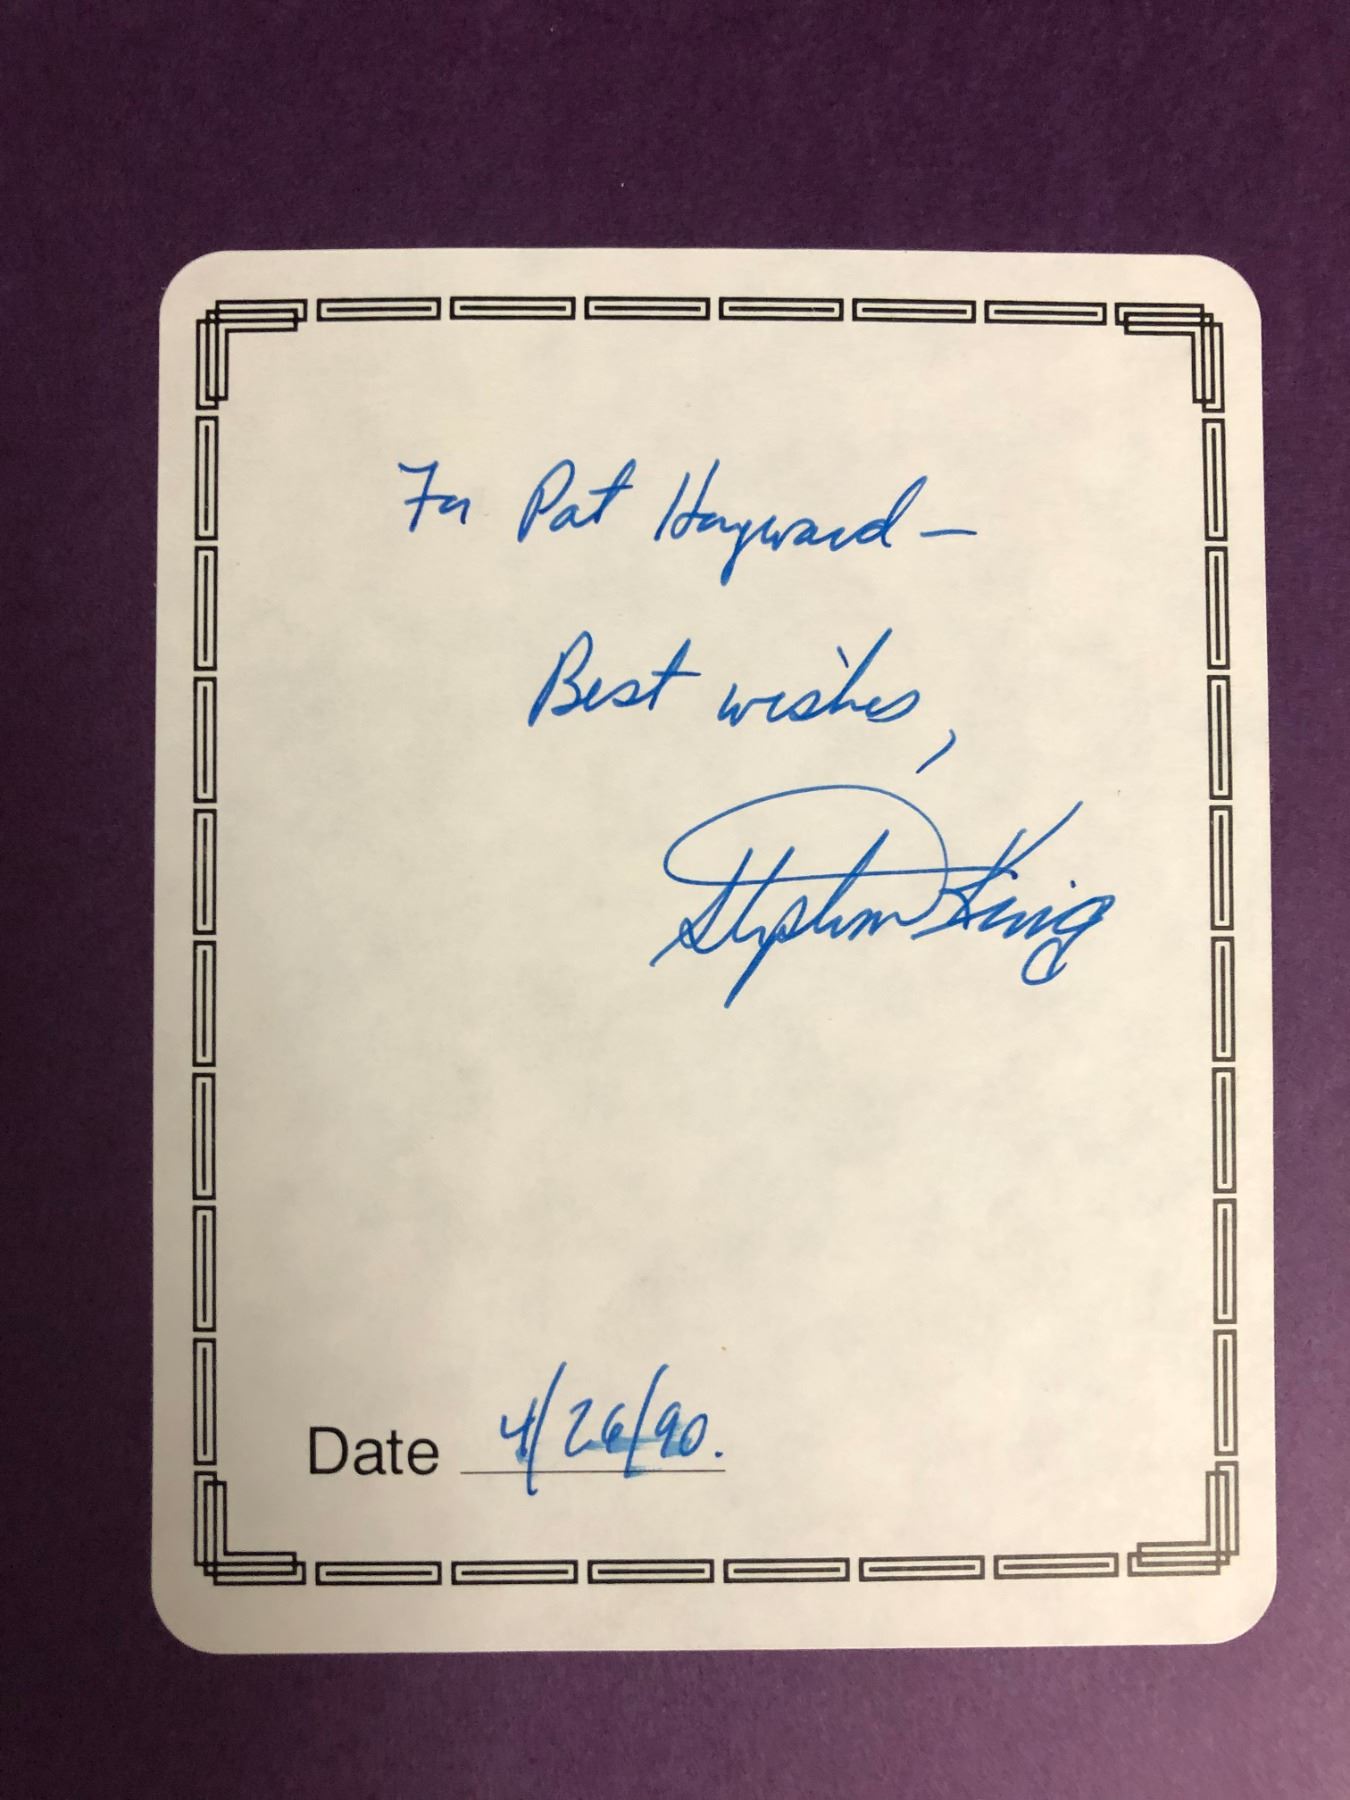 For Pat Hayward —
Best wishes,
Stephen King
Date 4/26/90.